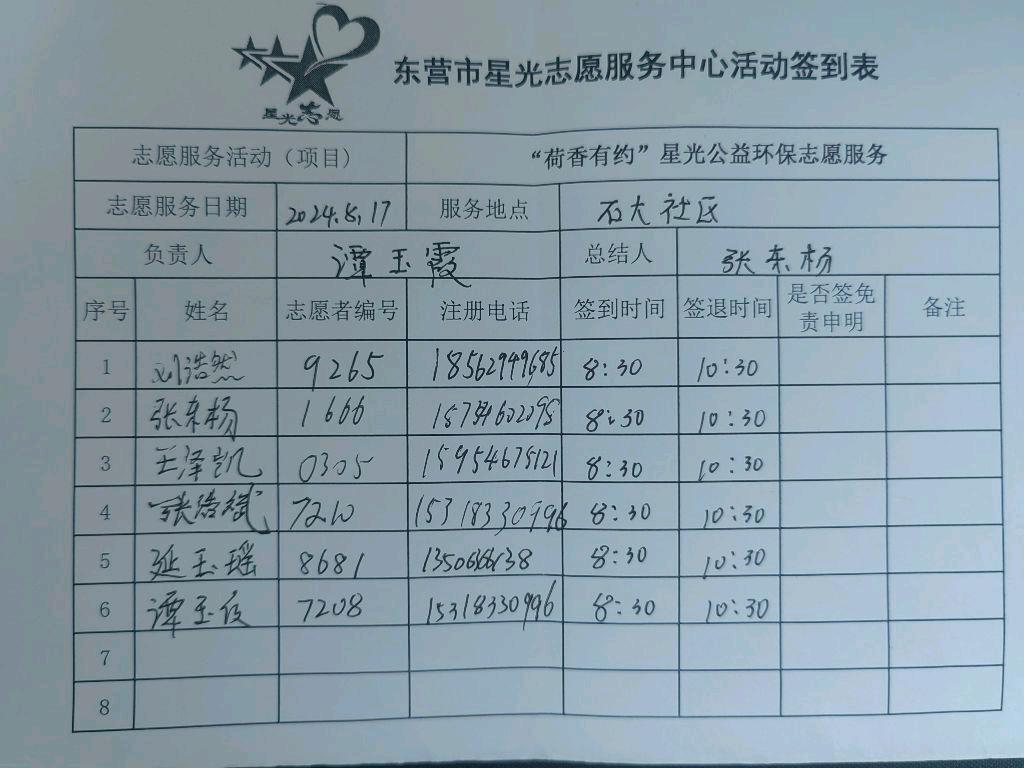 星光志愿
东营市星光志愿服务中心活动签到表
志愿服务活动（项目） “荷香有约”星光公益环保志愿服务
志愿服务日期 2024.8.17 服务地点 石大社区
负责人 谭玉霞 总结人 张东杨
序号 姓名 志愿者编号 注册电话 签到时间 签退时间 是否签免责申明 备注
1 刘浩然 9265 18562949685 8:30 10:30
2 张东杨 1666 8:30 10:30
3 王泽凯 0305 15954675121 8:30 10:30
4 张浩斌 7210 15318330996 8:30 10:30
5 延玉瑶 8681 8:30 10:30
6 谭玉霞 7208 15318330996 8:30 10:30
7
8